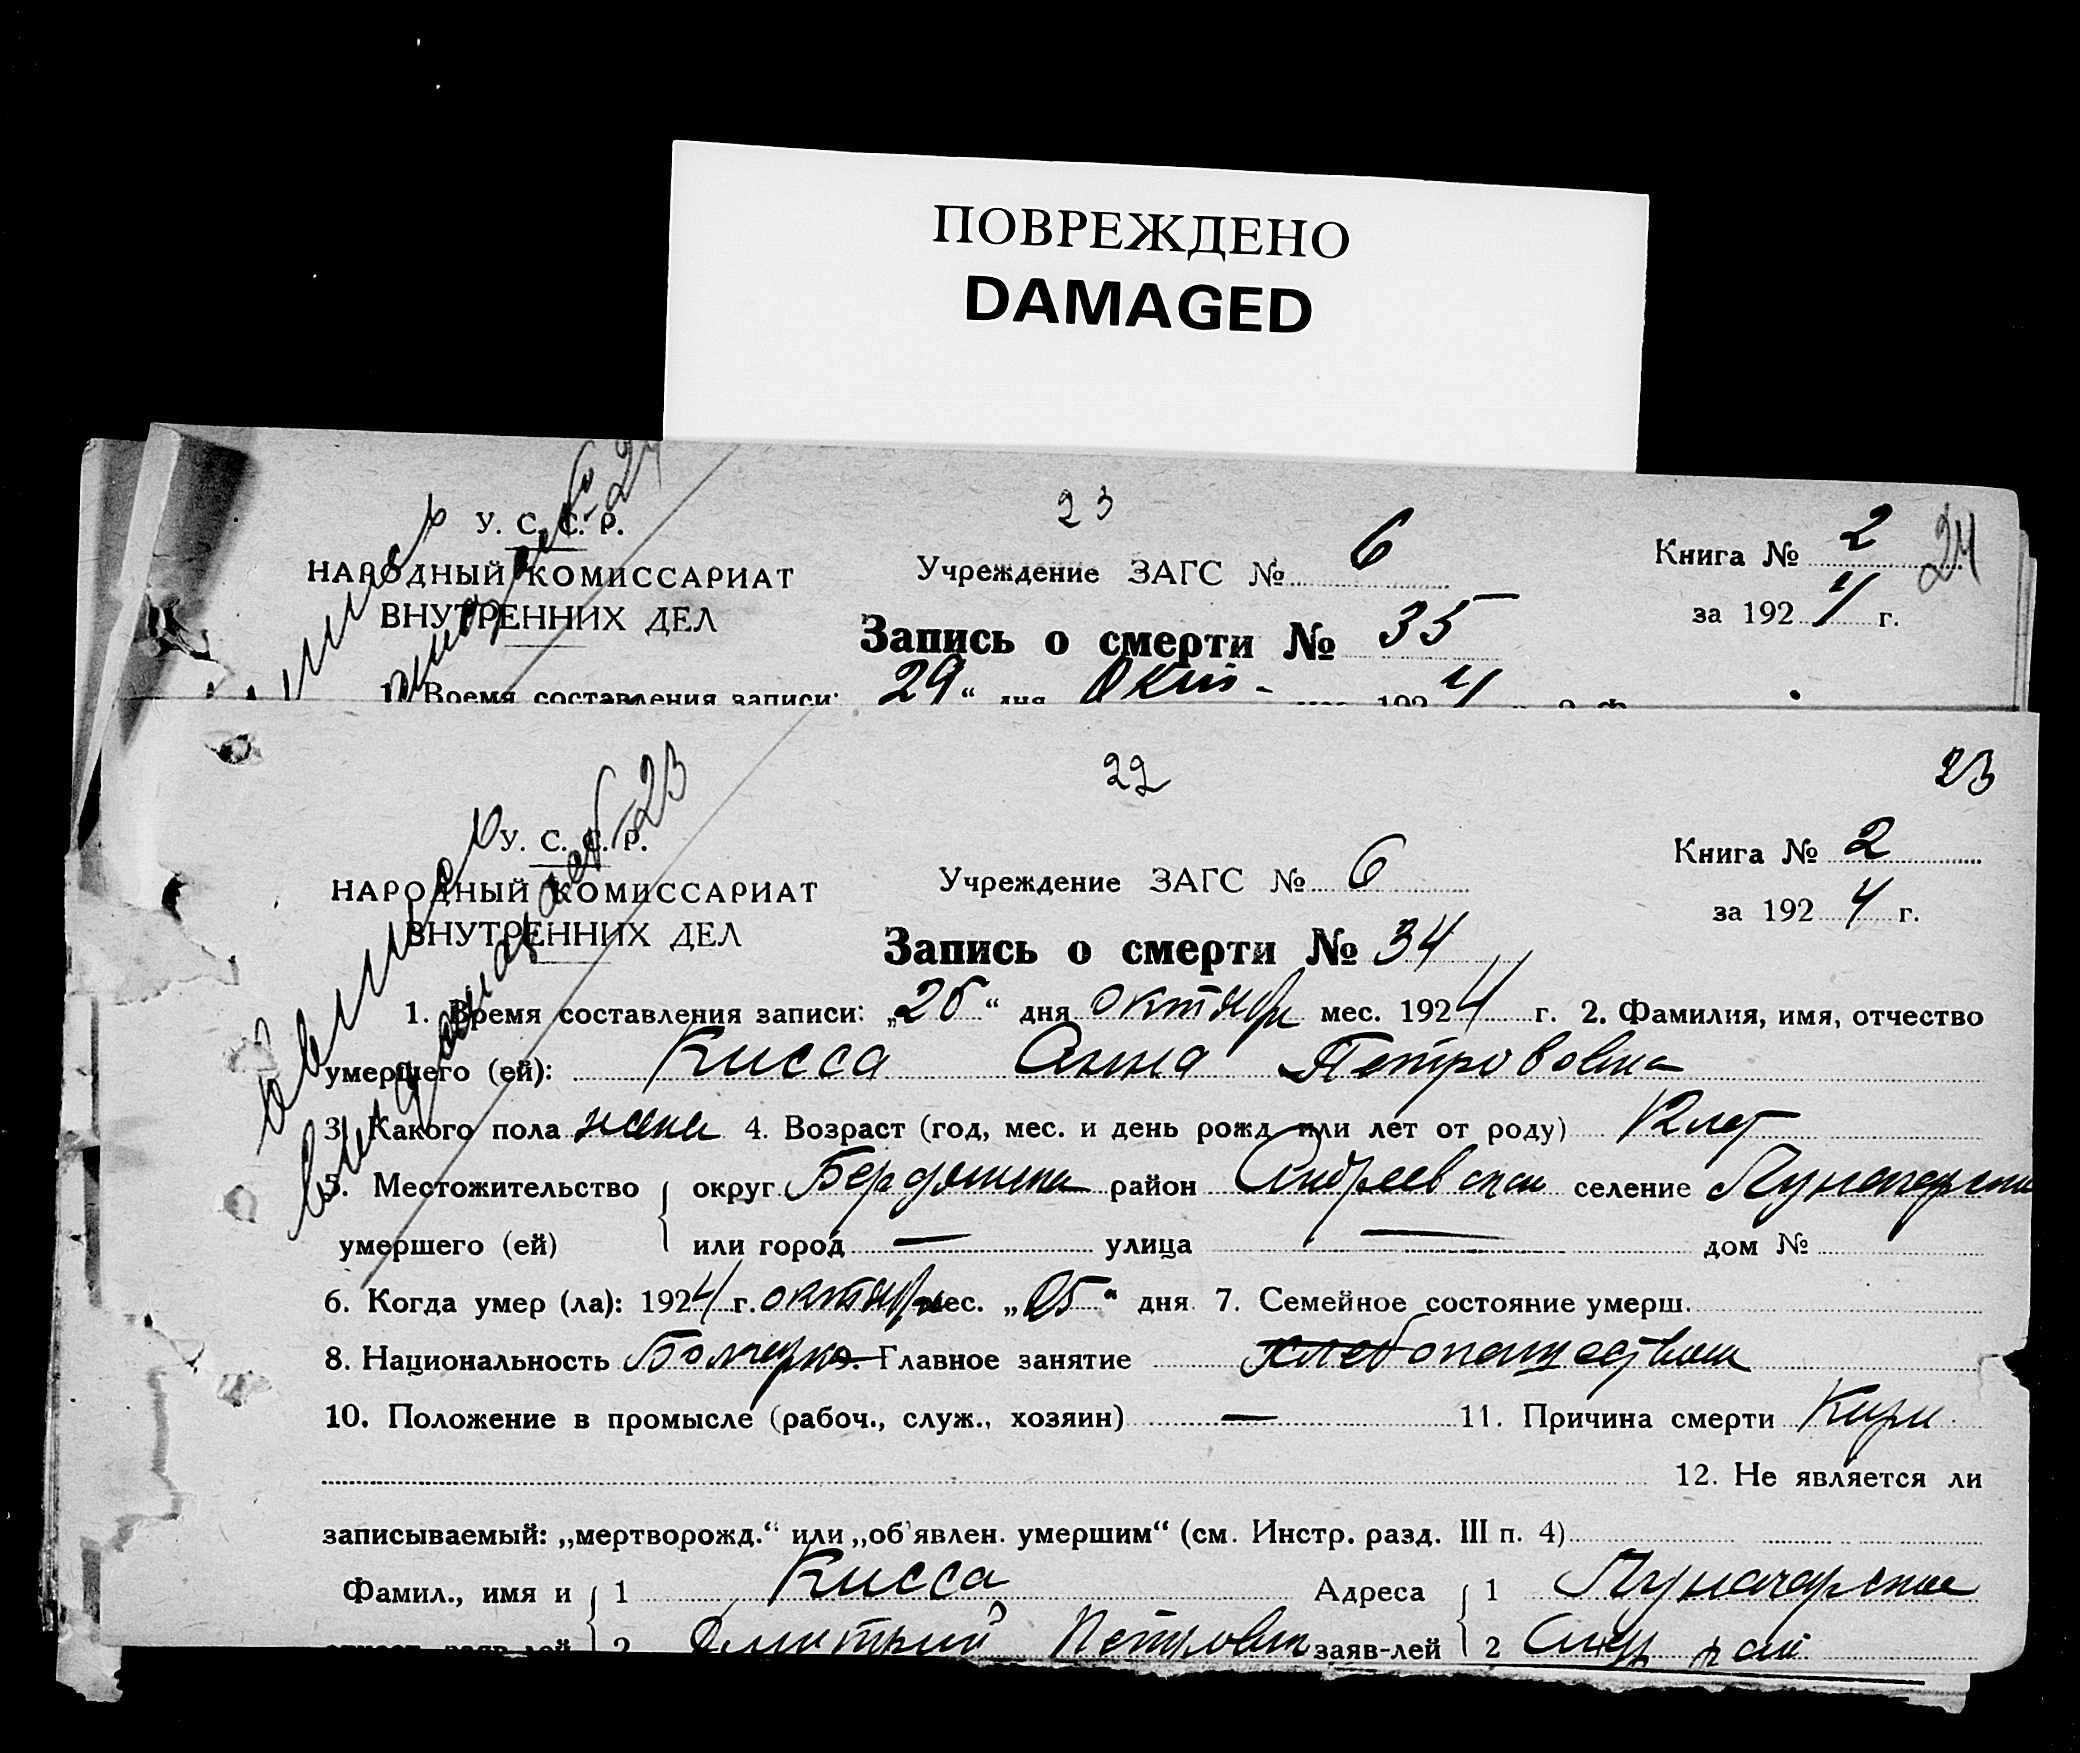 ПОВРЕЖДЕНО
DAMAGED
23
24
У. С. С. Р.
НАРОДНЫЙ КОМИССАРИАТ
ВНУТРЕННИХ ДЕЛ
Учреждение ЗАГС № 6
Книга № 2
за 1924 г.
Запись о смерти № 35
1. Время составления записи: 29 " дня Окт- 1924
22
23
У. С. С. Р.
НАРОДНЫЙ КОМИССАРИАТ
ВНУТРЕННИХ ДЕЛ
Учреждение ЗАГС № 6
Книга № 2
за 1924 г.
Запись о смерти № 34
1. Время составления записи: „26" дня октября мес. 1924 г. 2. Фамилия, имя, отчество
умершего (ей): Кисса Анна Петрововна
3. Какого пола жен 4. Возраст (год, мес. и день рожд или лет от роду) 12 лет
5. Местожительство округ район Андреевский селение
умершего (ей) или город — улица — дом №
6. Когда умер (ла): 1924 г. октября мес. „25" дня 7. Семейное состояние умерш.
8. Национальность Болгарка Главное занятие хлебопашеством
10. Положение в промысле (рабоч., служ., хозяин) — 11. Причина смерти
12. Не является ли
записываемый: „мертворожд." или „об'явлен. умершим" (см. Инстр. разд. III п. 4)
Фамил., имя и 1 Кисса Адреса 1
отчест. заяв-лей 2 Дмитрий Петрович заяв-лей 2